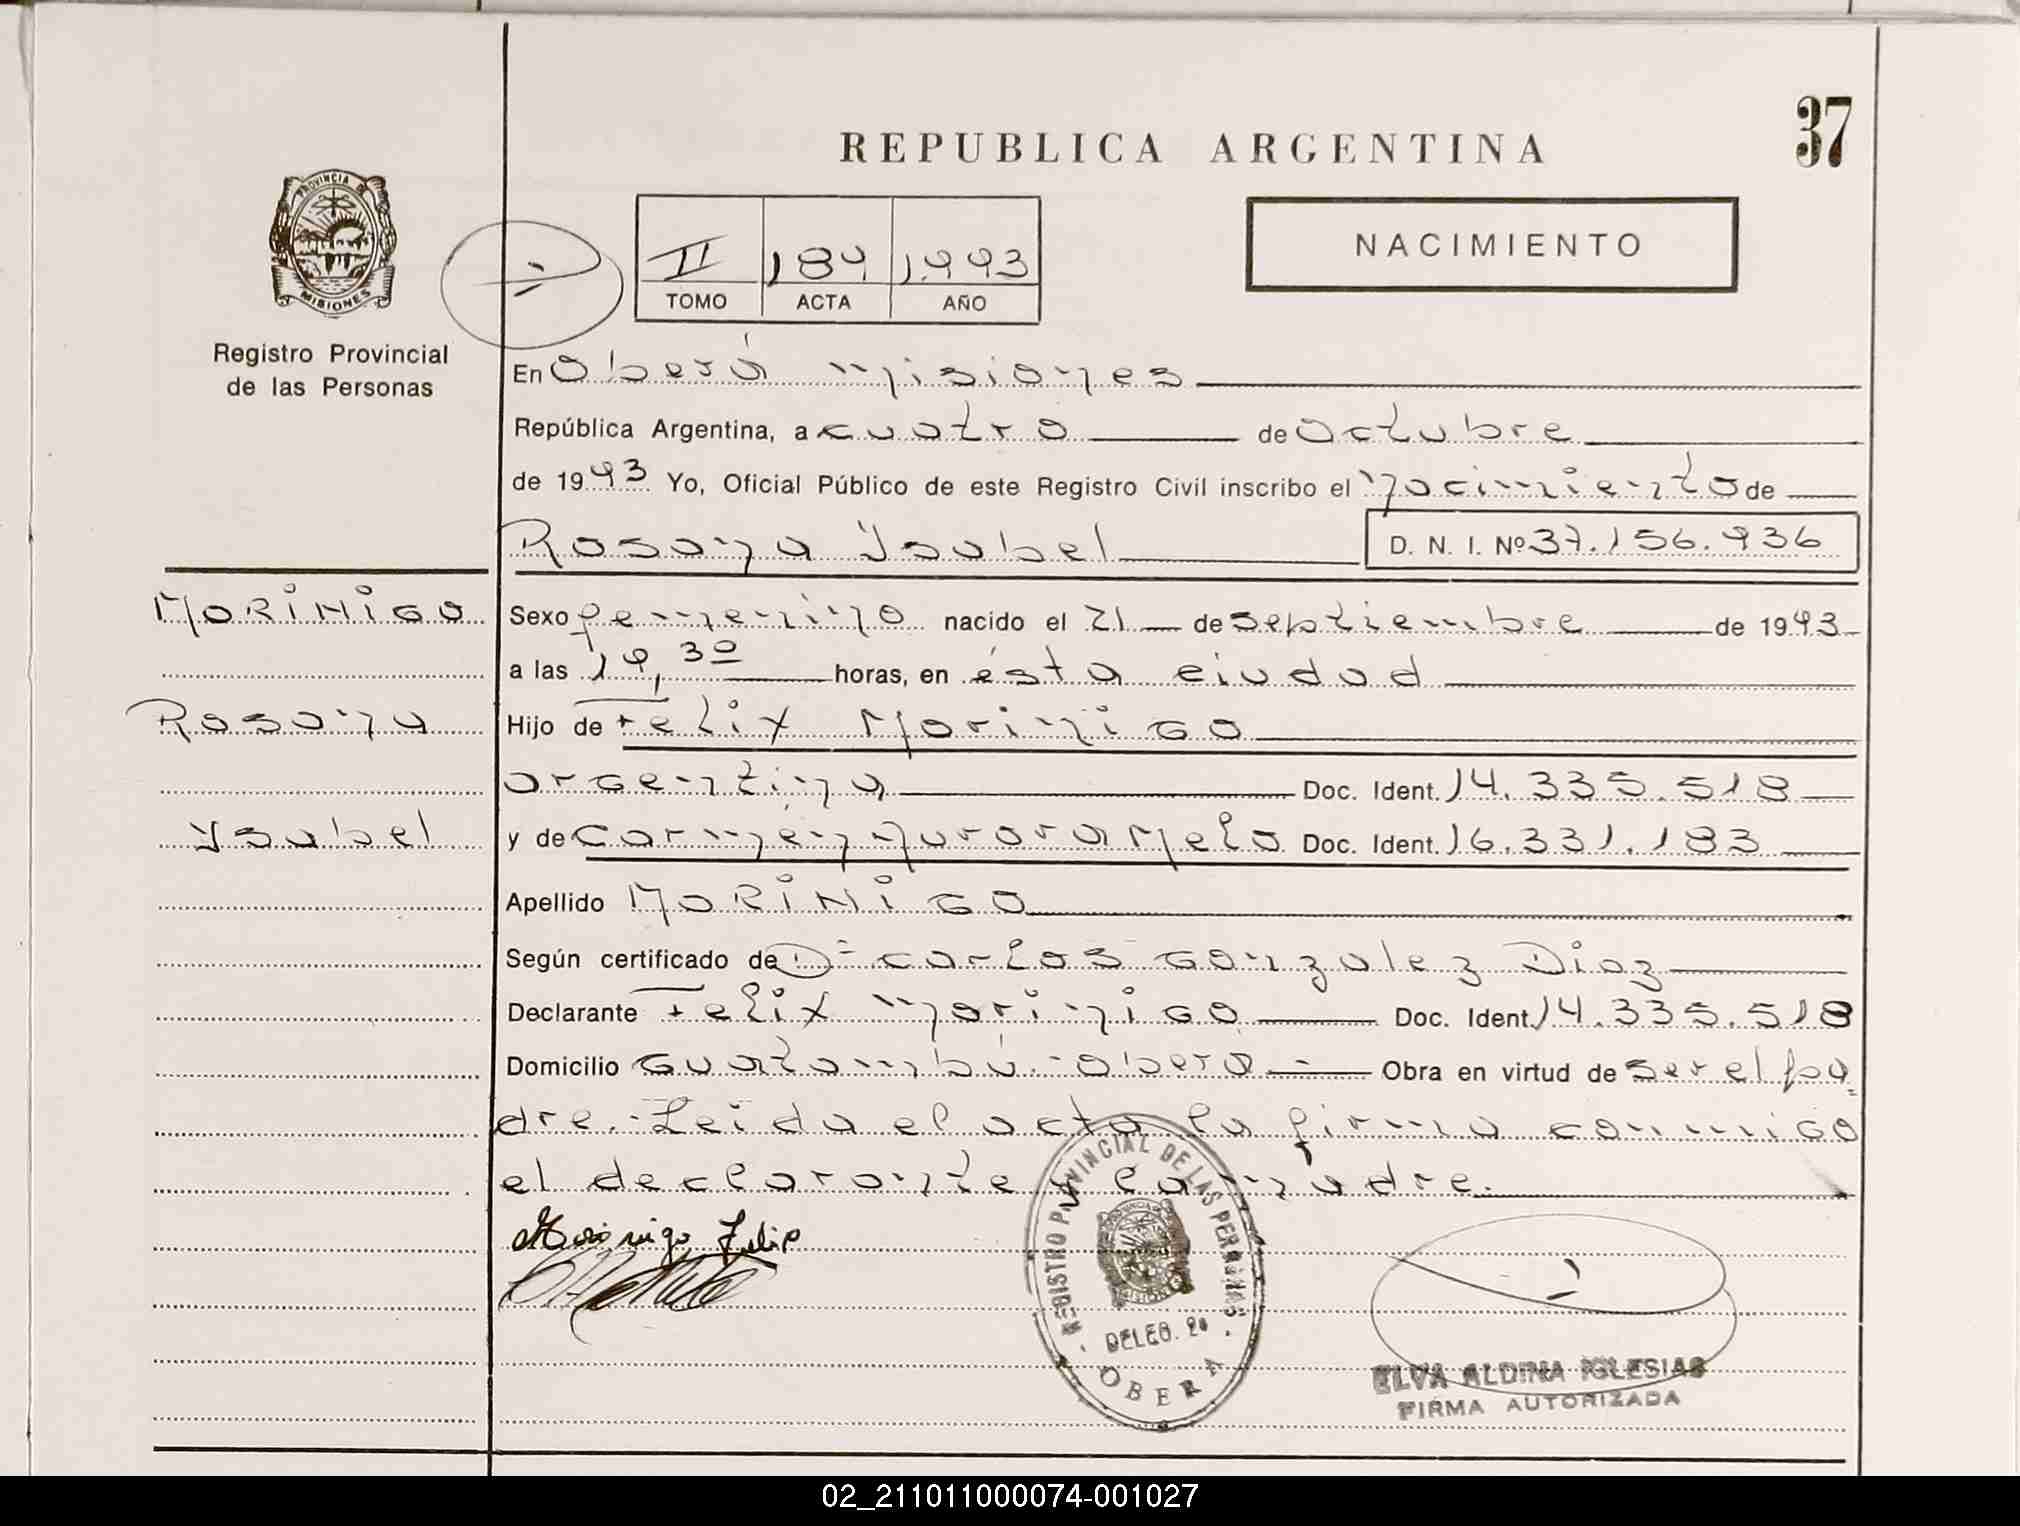 37
REPUBLICA ARGENTINA
PROVINCIA DE
MISIONES
NACIMIENTO
II 184 1993
TOMO ACTA AÑO
Registro Provincial
de las Personas
En Oberá misiones
República Argentina, a cuatro de octubre
de 1993 Yo, Oficial Público de este Registro Civil inscribo el nacimiento de
Rosana Ysabel D. N. I. Nº 37.156.936
MORINIGO
Rosana
Ysabel
Sexo femenino nacido el 21 de septiembre de 1993
a las 19,30 horas, en ésta ciudad
Hijo de Felix Morinigo
argentina Doc. Ident. 14.335.518
y de Carmen Aurora Melo Doc. Ident. 16.331.183
Apellido MORINIGO
Según certificado de Dº Carlos Gonzalez Diaz
Declarante Felix Morinigo Doc. Ident. 14.335.518
Domicilio Guatambú-Oberá - Obra en virtud de ser el pa
dre.- Leida el acta la firma conmigo
el declarante y la madre.
Morinigo Felip
REGISTRO PROVINCIAL DE LAS PERSONAS
DELEG.
OBERA
ELVA ALDINA IGLESIAS
FIRMA AUTORIZADA
02_211011000074-001027